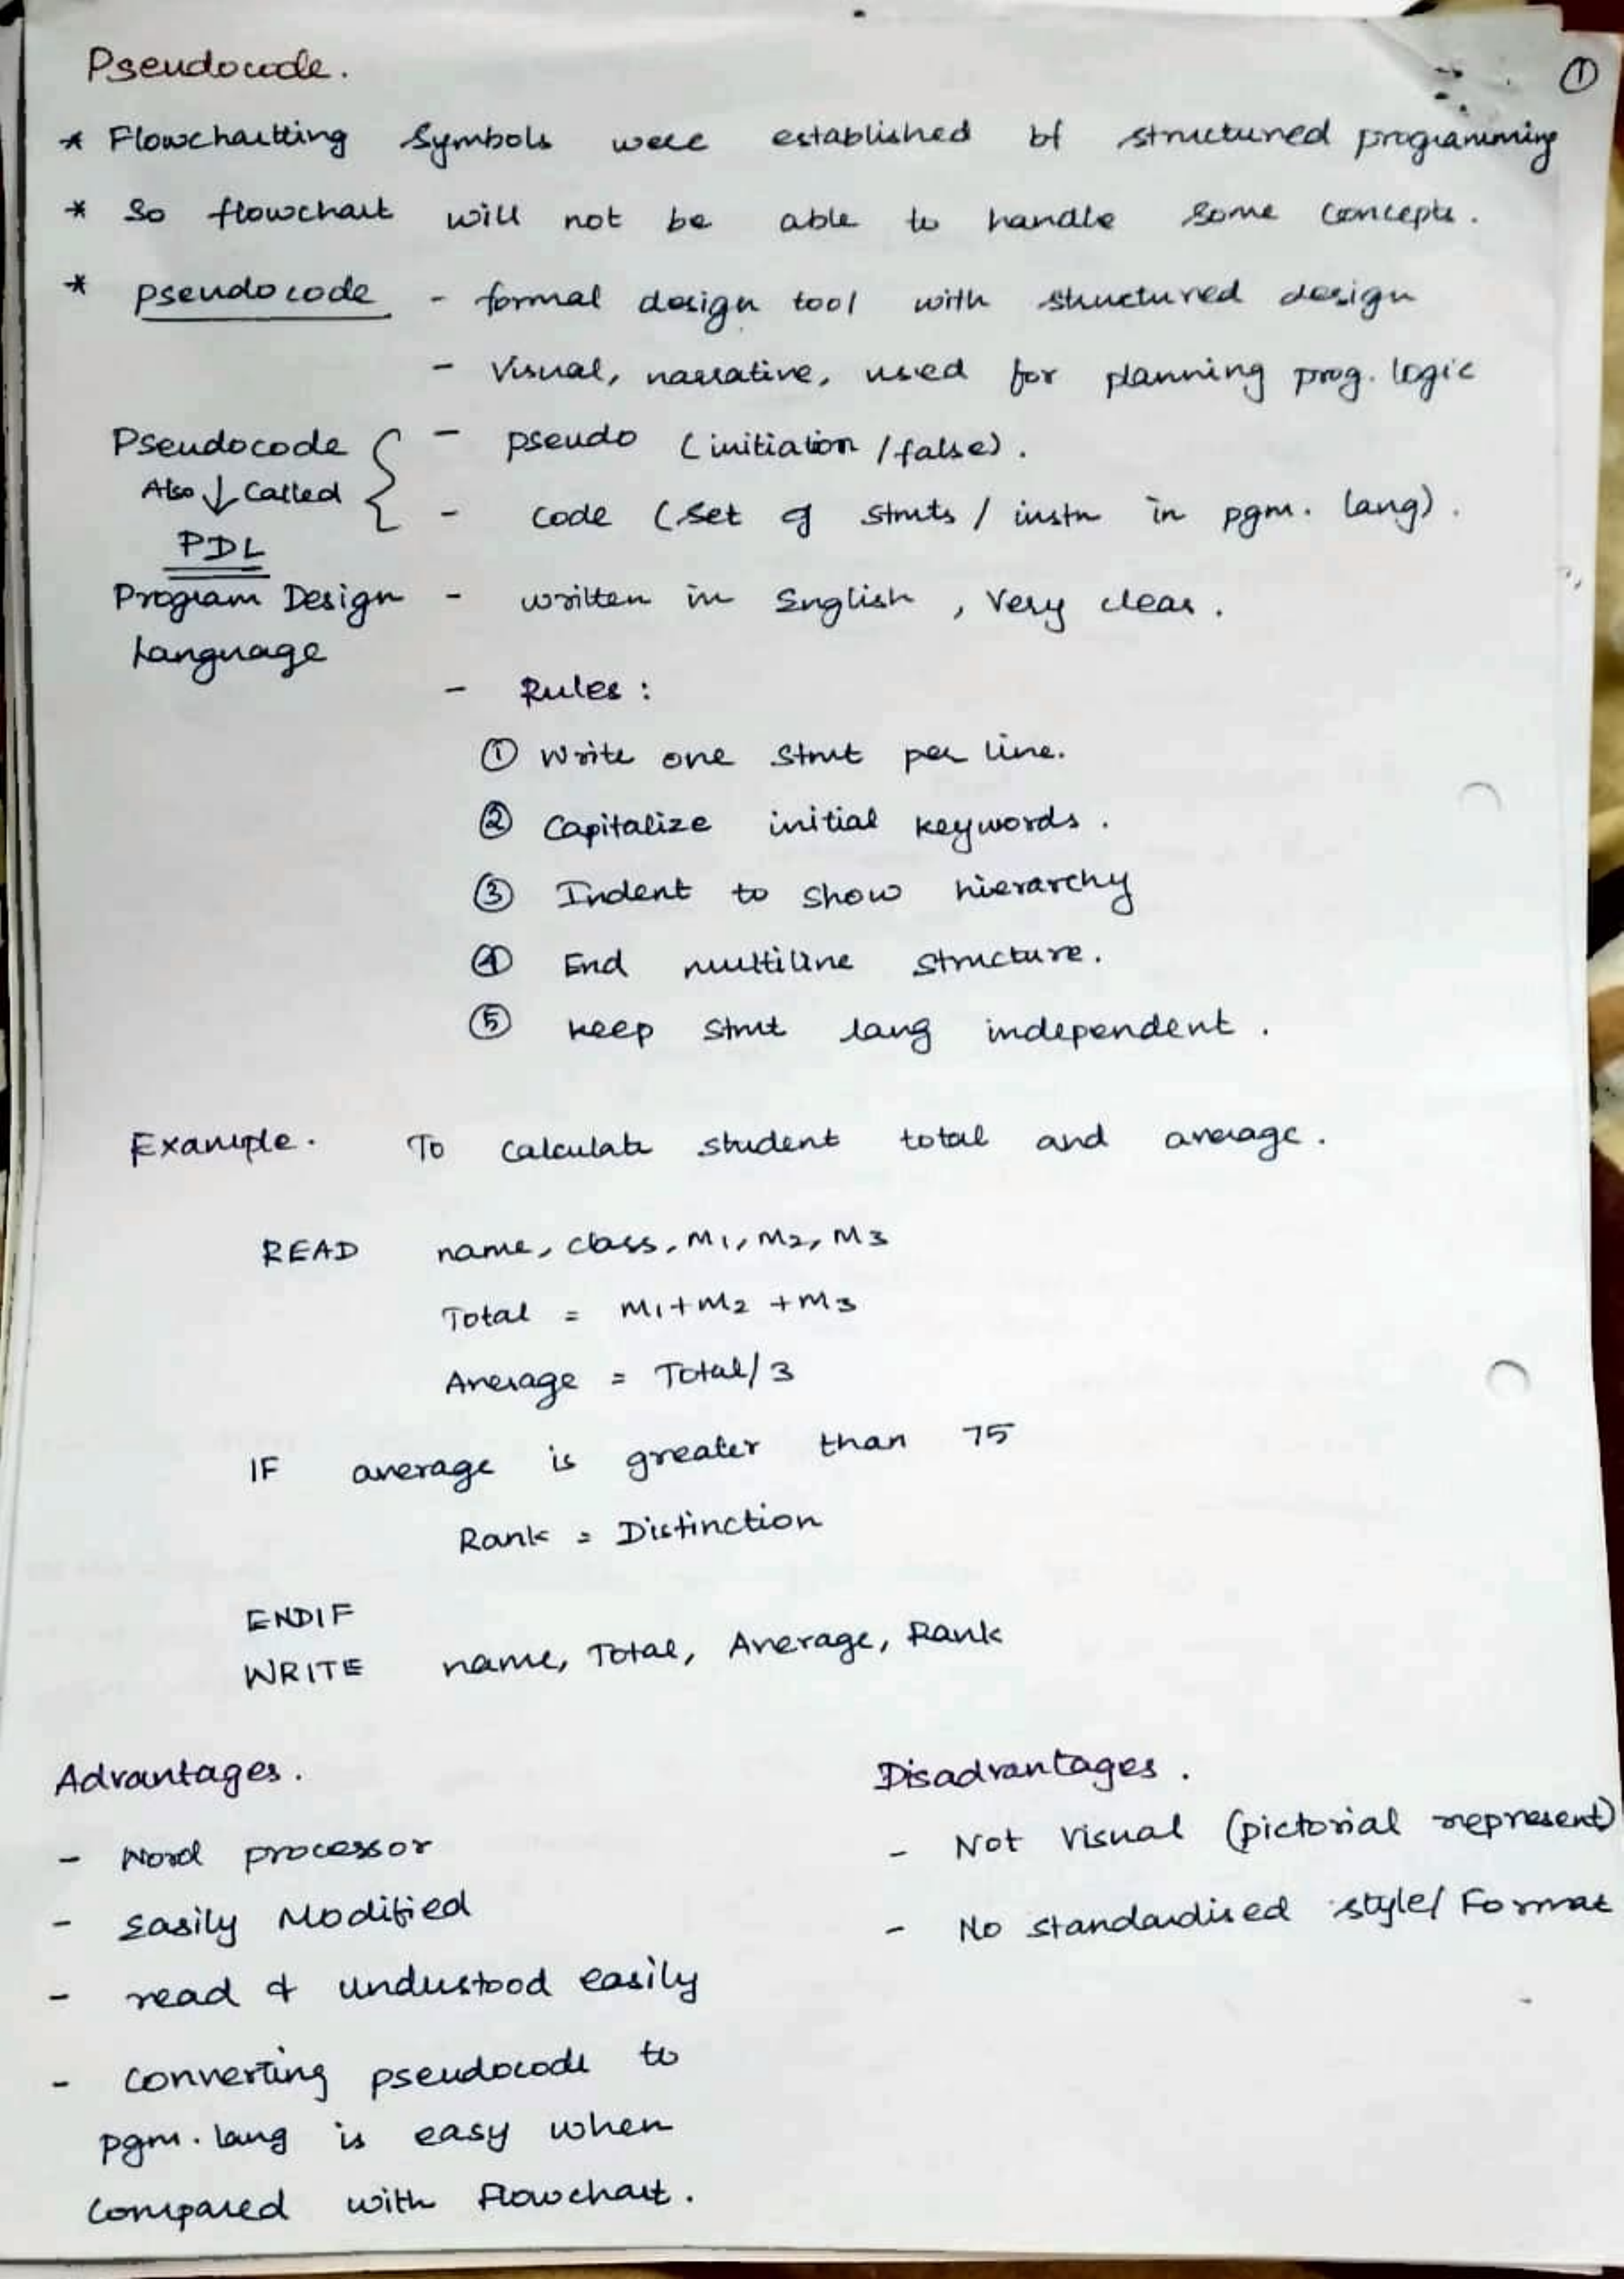 Pseudocode.
①
* Flowchartting Symbols were established bf structured programming
* So flowchart will not be able to handle some concepts.
* pseudocode - formal design tool with structured design
- Visual, narrative, used for planning prog. logic
Pseudocode { - pseudo (initiation / false).
Also ↓ Called - code (set of stmts / instn in pgm. lang).
PDL
Program Design - written in English, Very clear.
Language
- Rules :
① Write one stmt per line.
② Capitalize initial keywords.
③ Indent to show hierarchy
④ End multiline structure.
⑤ keep stmt lang independent.
Example. To calculate student total and average.
READ name, class, M1, M2, M3
Total = M1+M2 +M3
Average = Total/3
IF average is greater than 75
Rank = Distinction
ENDIF
WRITE name, Total, Average, Rank
Advantages.
- Word processor
- Easily Modified
- read & understood easily
- Converting pseudocode to
pgm. lang is easy when
compared with Flowchart.
Disadvantages.
- Not Visual (pictorial represent)
- No standardised style/ Format